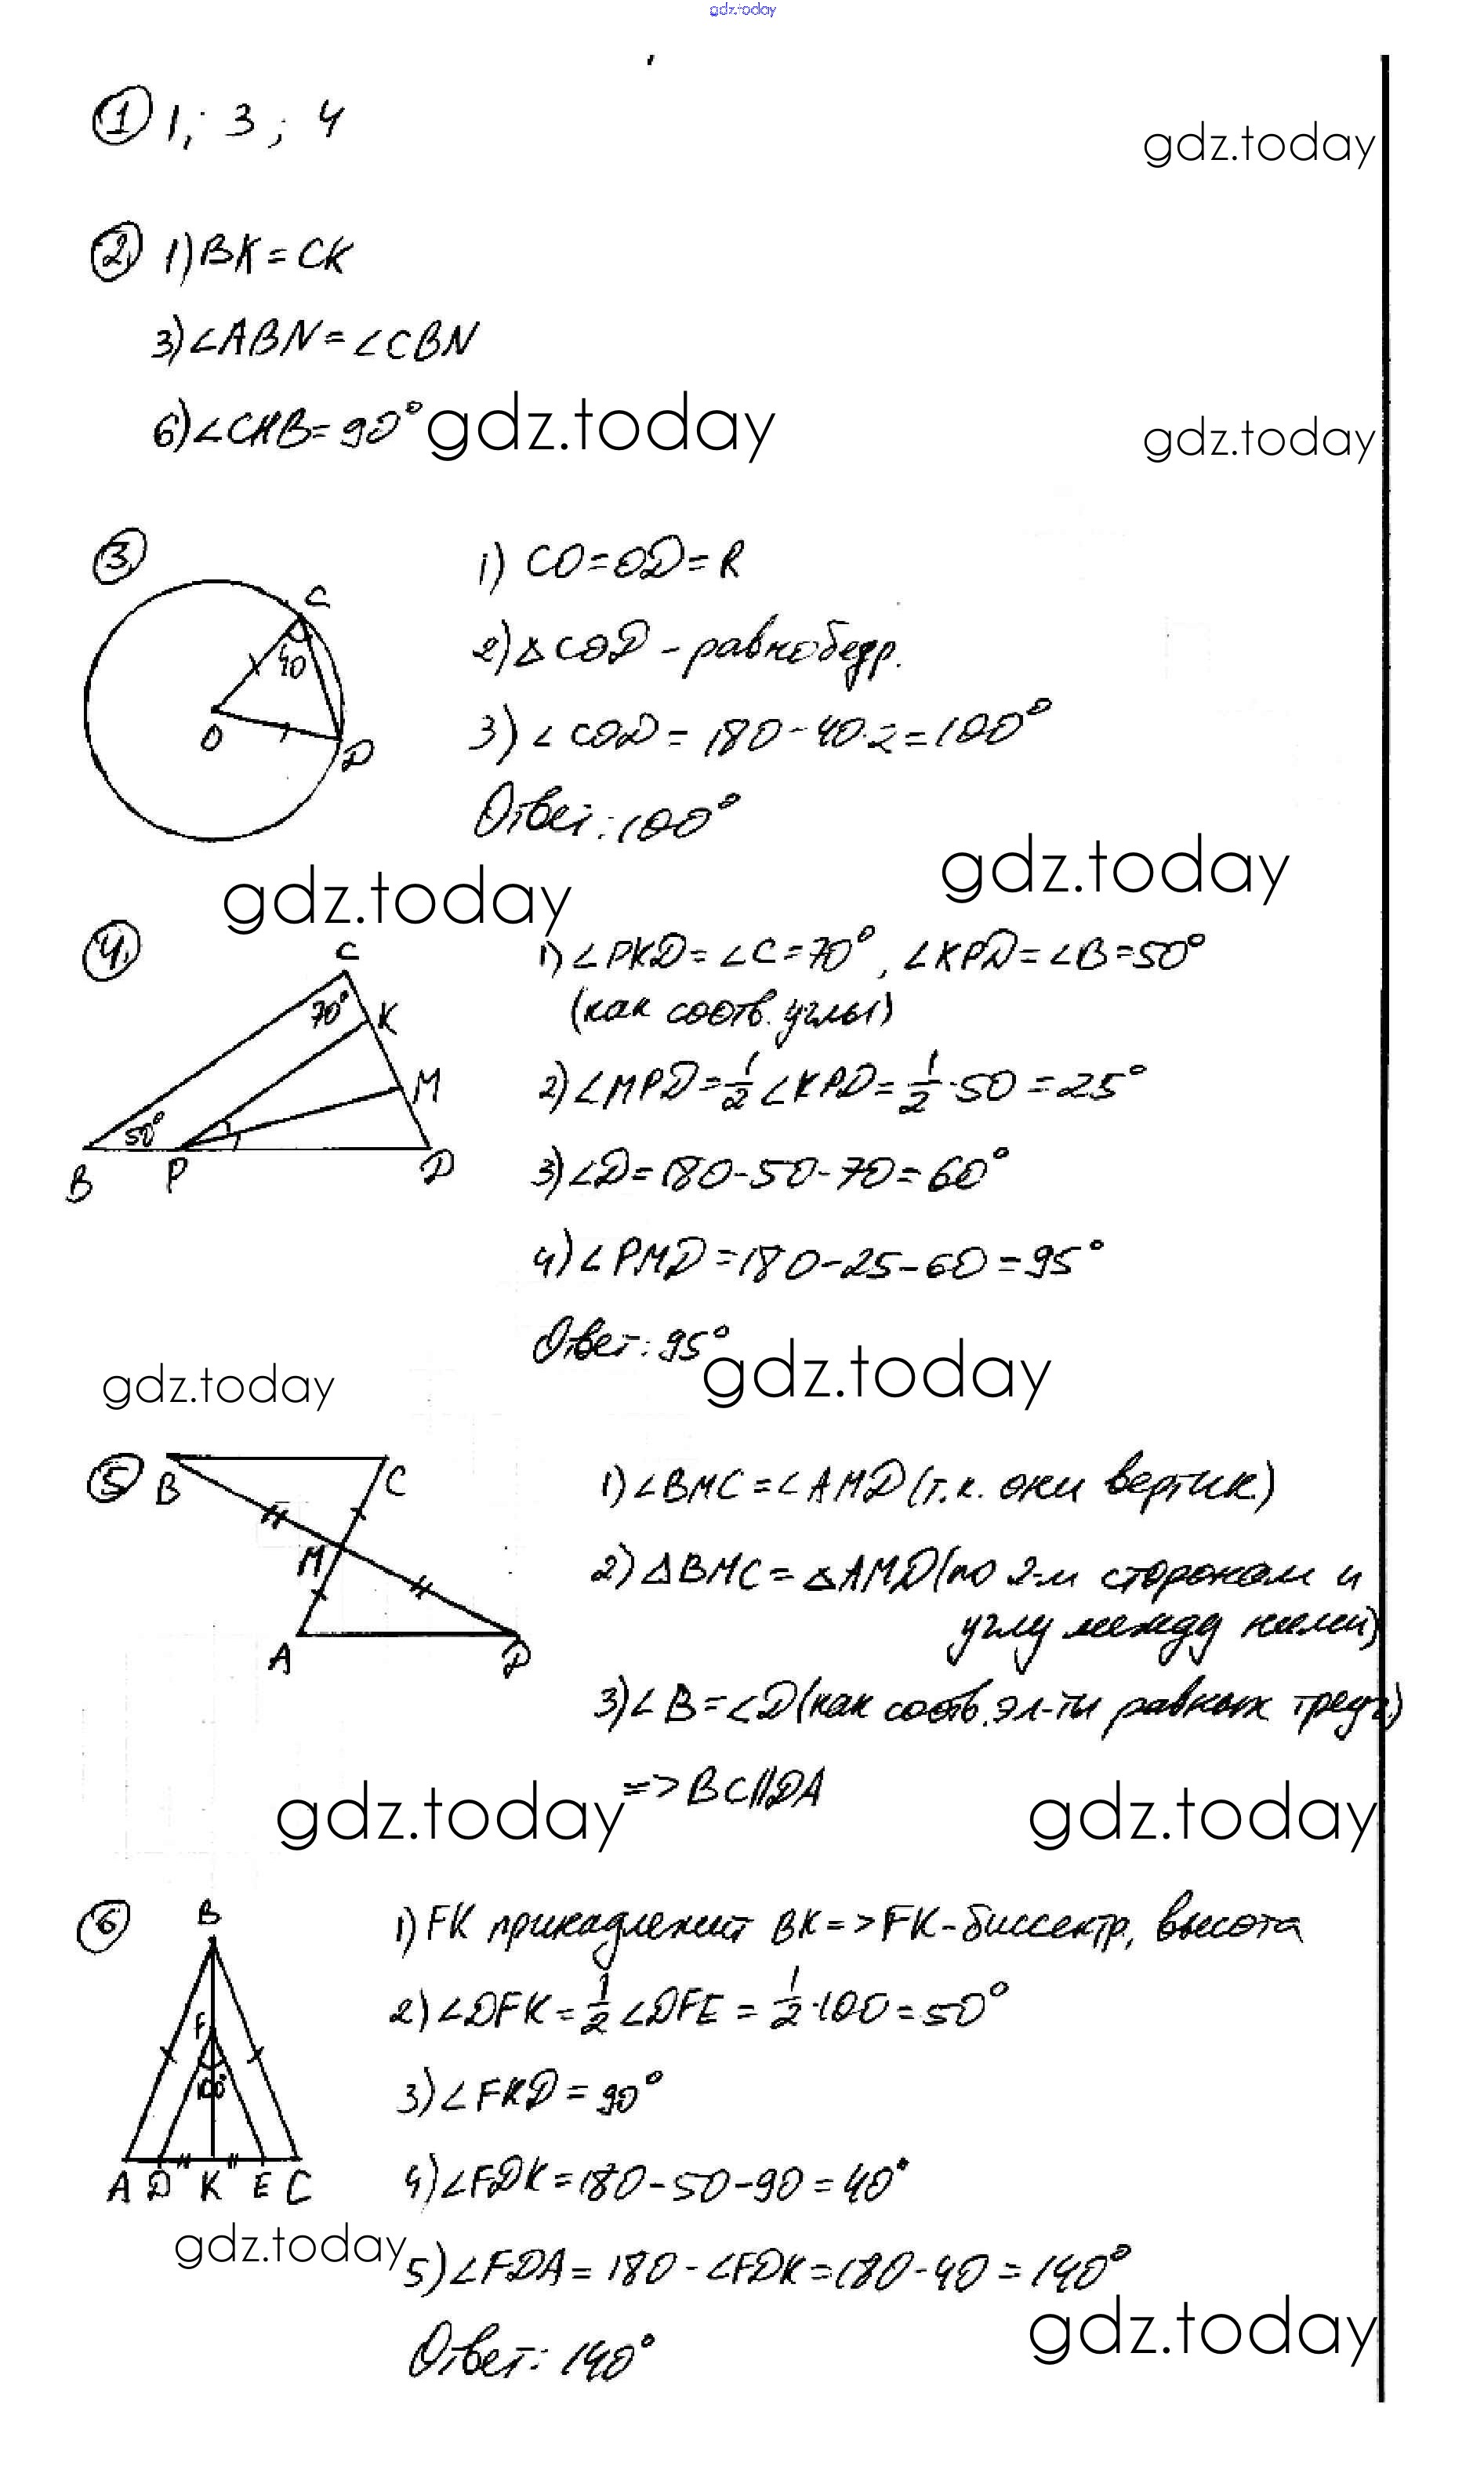 gdz.today
① 1; 3; 4
gdz.today
② 1) BK = CK
3) ∠ABN = ∠CBN
6) ∠CHB = 90°
gdz.today
gdz.today
③
C
40
O
D
1) CO = OD = R
2) △COD - равнобедр.
3) ∠COD = 180 - 40·2 = 100°
Ответ: 100°
gdz.today
gdz.today
④
C
70°
K
M
50°
B
P
D
1) ∠PKD = ∠C = 70°, ∠KPD = ∠B = 50°
(как соотв. углы)
2) ∠MPD = 1/2 ∠KPD = 1/2 · 50 = 25°
3) ∠D = 180 - 50 - 70 = 60°
4) ∠PMD = 180 - 25 - 60 = 95°
Ответ: 95°
gdz.today
gdz.today
⑤
B
C
M
A
D
1) ∠BMC = ∠AMD (т.к. они вертик.)
2) △BMC = △AMD (по 2-м сторонам и
углу между ними)
3) ∠B = ∠D (как соотв. эл-ты равных треуг.)
=> BC || DA
gdz.today
gdz.today
⑥
B
F
100°
A D K E C
1) FK принадлежит BK => FK - биссектр, высота
2) ∠DFK = 1/2 ∠DFE = 1/2 · 100 = 50°
3) ∠FKD = 90°
4) ∠FDK = 180 - 50 - 90 = 40°
5) ∠FDA = 180 - ∠FDK = 180 - 40 = 140°
Ответ: 140°
gdz.today
gdz.today